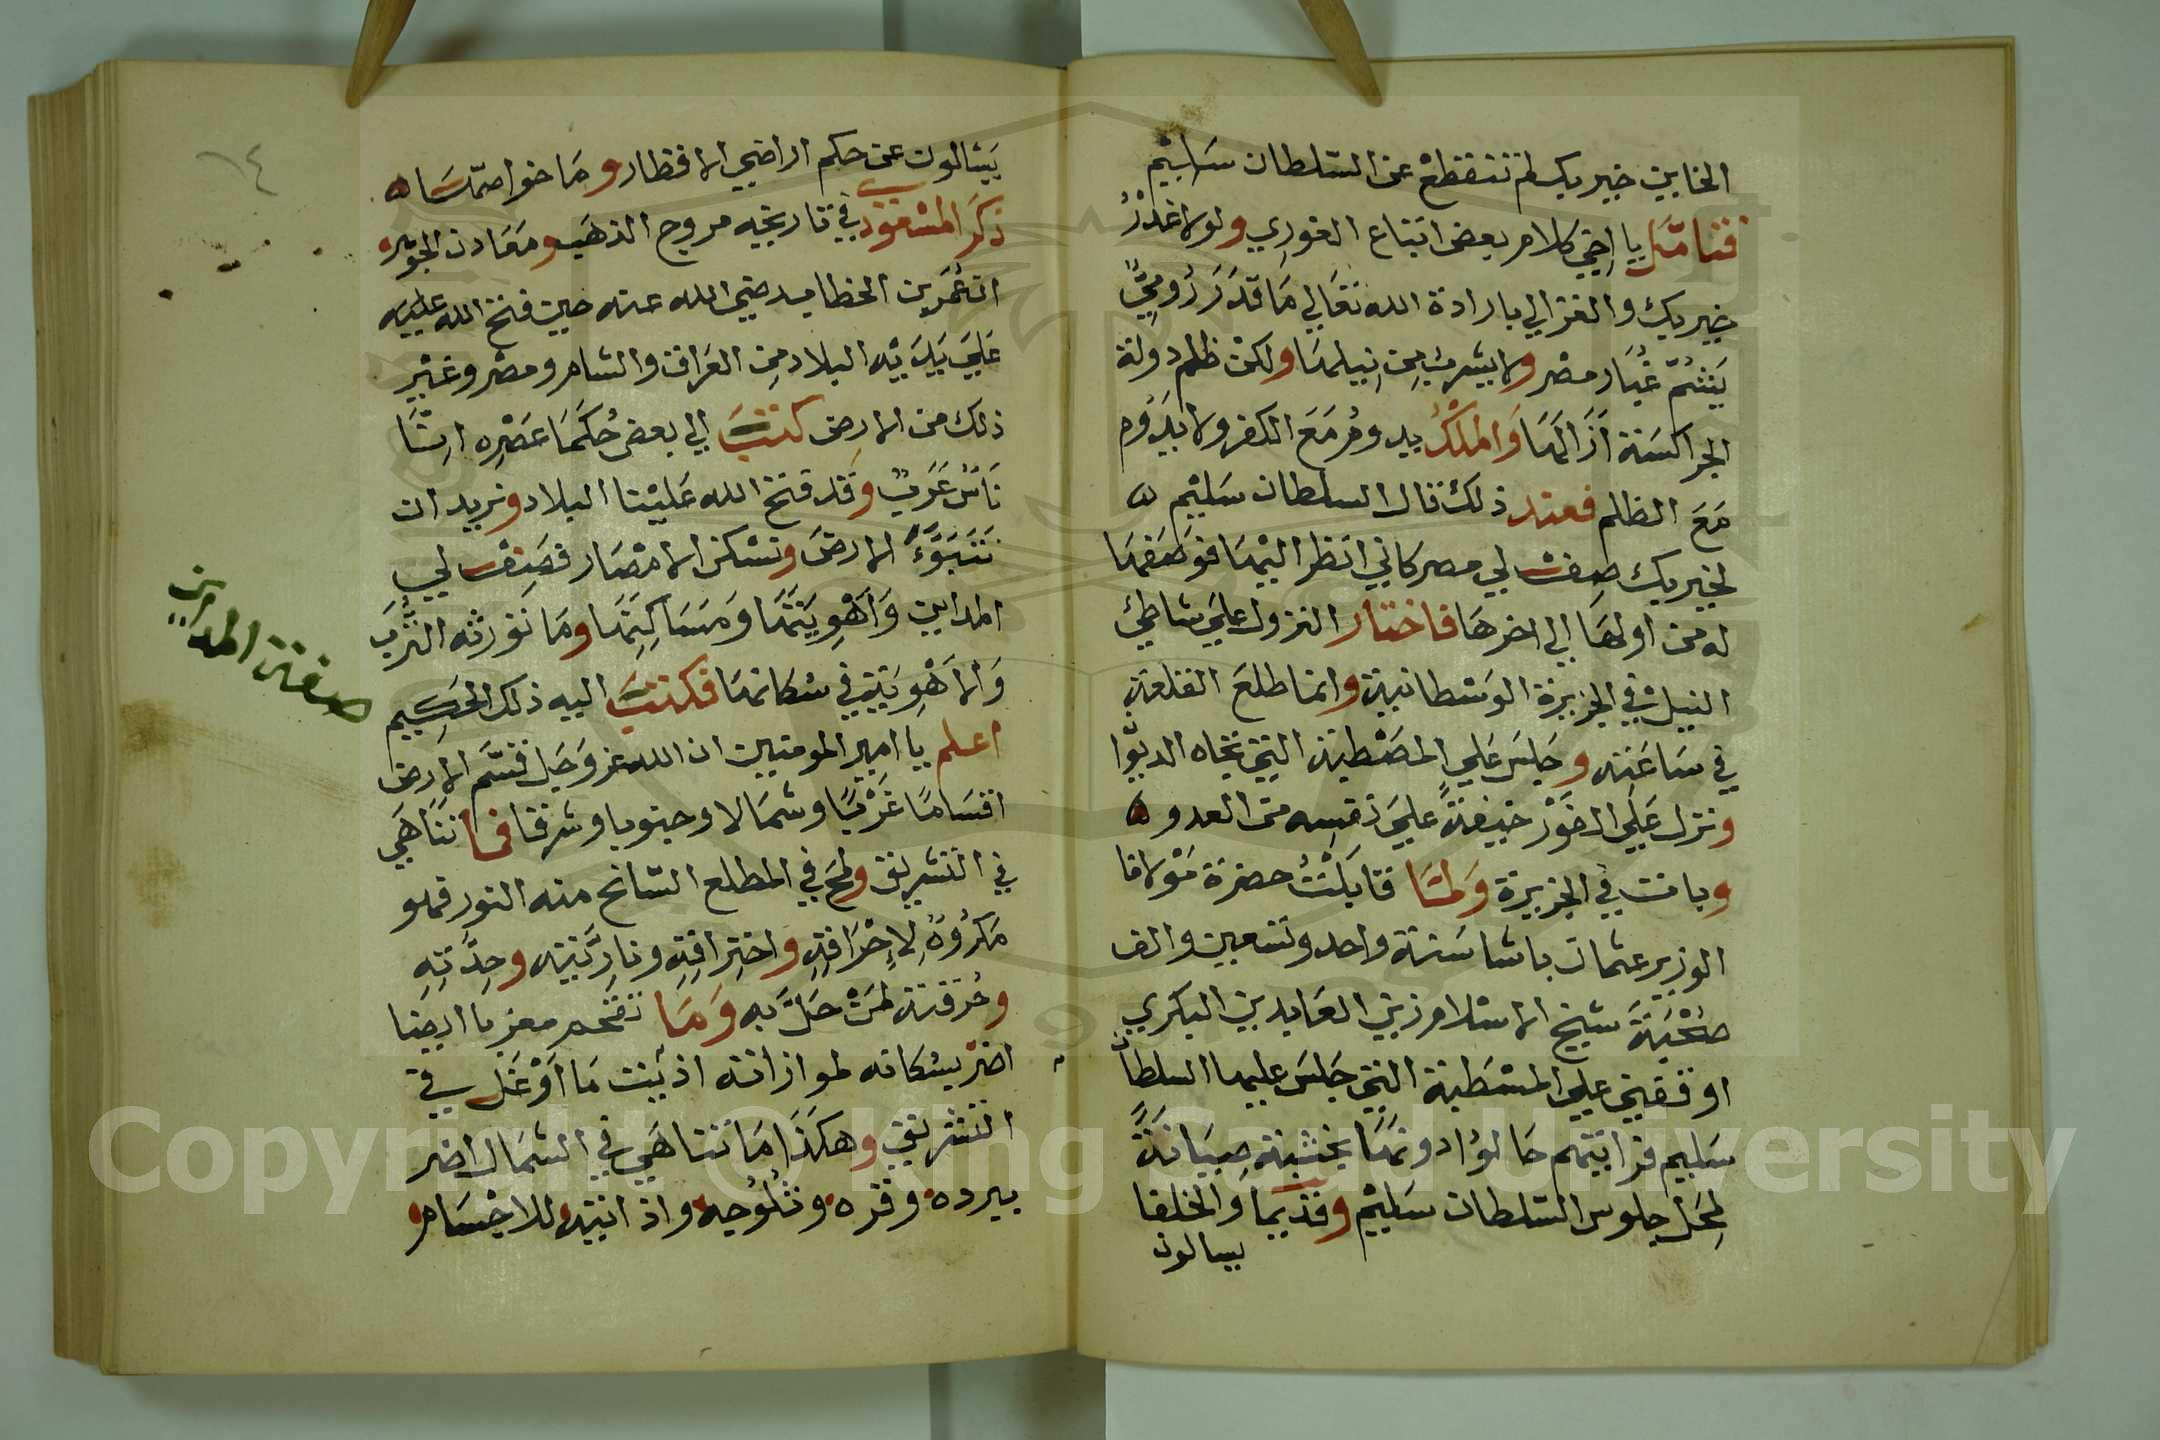 الخاين خيربك لم تنقطع عن السلطان سَليْم
فتامّل يا اخي كلام بعض اتباع الغوري ولولا غَدْرُ
خيربك والغزالي بارادة الله تعالي مَا قدَرَ رُوميٌّ
يَشُمّ غبَار مصْر ولا يشرب مِن نِيلهَا ولكن ظلم دولة
الجراكسَة اَزَالهَا وَالملْكُ يدوم مَعَ الكفر ولا يَدُوم
مَعَ الظلم فعند ذلك قال السلطان سَليْم ه
لخيربك صِفْ لي مصر كاني انظر اليْهَا فوَصَفهَا
له من اولهَا الي اخرهَا فاختار النزول عليَ شاطئ
النيل في الجزيرة الوَسْطانية وانما طلعَ القلعة
في سَاعَته وجَلسَ عَلي المصَْطبة التي تجاه الديوا
ونزل عَلي الفَوْر خيفةً عليَ نفسِه من العدو ه
وبات في الجزيرة وَلمَّا قابَلْتُ حضرَة مَوْلانا
الوزير عثمان باشا سَنة واحد وتسعين والف
صُحْبَةَ شيخ الاسْلام زين العَابدين البكري
اوقفني علي المسْطبة التي جَلسَ عليها السلطان
سَليم فرايتهم حَالوا دونهَا بخشبة صِيَانةً
لمحَل جلوس السّلطان سَليْم وقديما والخلفا
يسالون
١٤
يَسْالون عن حكم اراضي الاقطار ومَا خواصّهَا ه
ذكَرَ المسْعُودي في تاريخه مروج الذهَب ومَعَادن الجوْهر
ان عُمَر بن الخطاب رضي الله عنه حين فتح الله عليه
عَليَ يَدَيْه البلاد مِن العرَاق والشام ومصْر وغيْر
ذلك من الارض كتبَ الي بعض حُكمَا عَصْره انِّا
نَاسٌ عَرَبٌ وَقد فتح الله عَليْنا البلاد ونريد ان
نَتَبَوَّءَ الارضَ ونسْكن الامْصَار فصِفْ لي
المداين وَاَهْوِيَتهَا وَمَسَاكِنهَا ومَا تورثه التُّرَبَ
وَالاَهْوِيَة في سكانهَا فكتبَ اليه ذلك الحَكِيم
اعلم يا امير المومنين ان الله عز وَجَل قسَّم الارض
اقسَامًا غَرْبًا وشمَالا وجنوبا وشرقا فما تنَاهَي
في التشريق ولجّ في المطلع السَّانح منه النور فهو
مَكرُوهٌ لاِحْرَاقِه واحترَاقِه ونارِيَّته وحِدَّتِه
وحُرقته لمَنْ حَلَّ به وَمَا تقحم مغربا ايضا
اضرّ بسكانه لموازاته اذ بنت مَا اَوْغَل في
التشريق وهكذَا مَا تناهَي في الشمَال اضر
ببرده وقرّه وثلُوجه واذانته للاجْسَام
صفة المداين